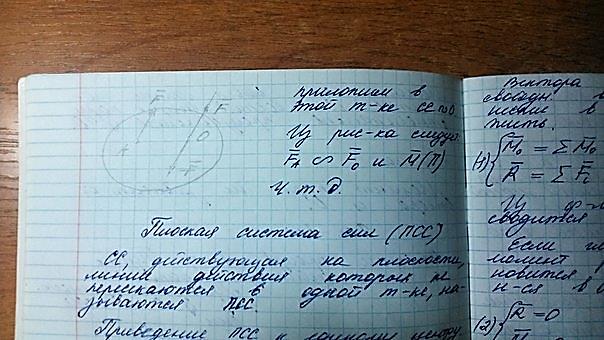 приложим в
этой т-ке СС ∾ 0
Из рис-ка следует
F̅_A ∾ F̅_O и M̅(П)
Ч.т.д.
Плоская система сил (ПСС)
СС, действующая на плоскости,
линии действия которых не
пересекаются в одной т-ке, на-
зываются ПСС.
Приведение ПСС к данному центру
F̅
F̅
A
O
-F̅
Вектора
свободн
в
жить.
(1) { M̅_O = Σ M̅_O
R̅ = Σ F̅
Из
сводится
Если
момент
новится
н-ся в
(2) { R̅ = 0